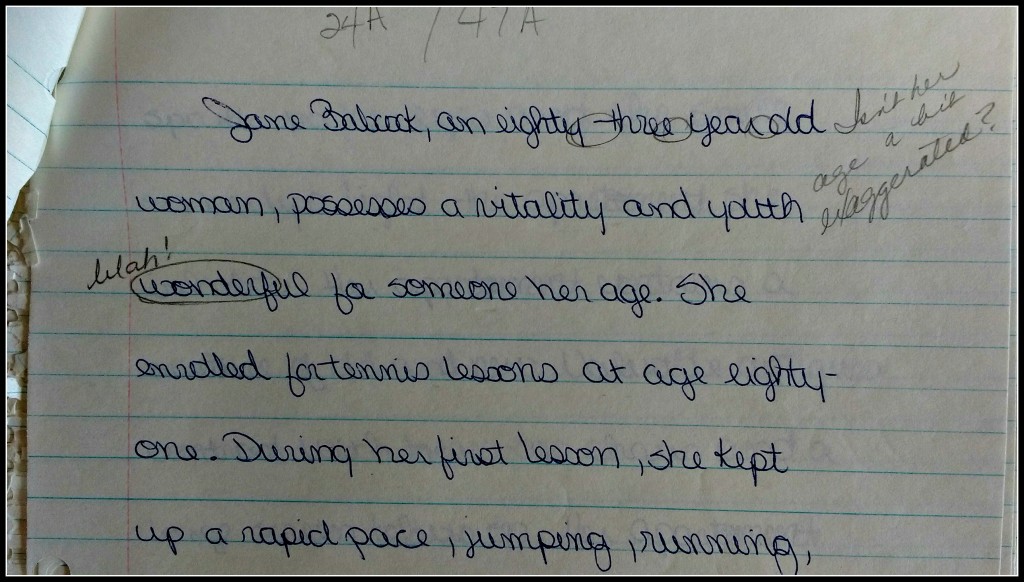 24A / 47A
Jane Babcock, an eighty-three year old
Isn't her
age a bit
exaggerated?
woman, possesses a vitality and youth
blah!
wonderful for someone her age. She
enrolled for tennis lessons at age eighty-
one. During her first lesson, she kept
up a rapid pace, jumping, running,